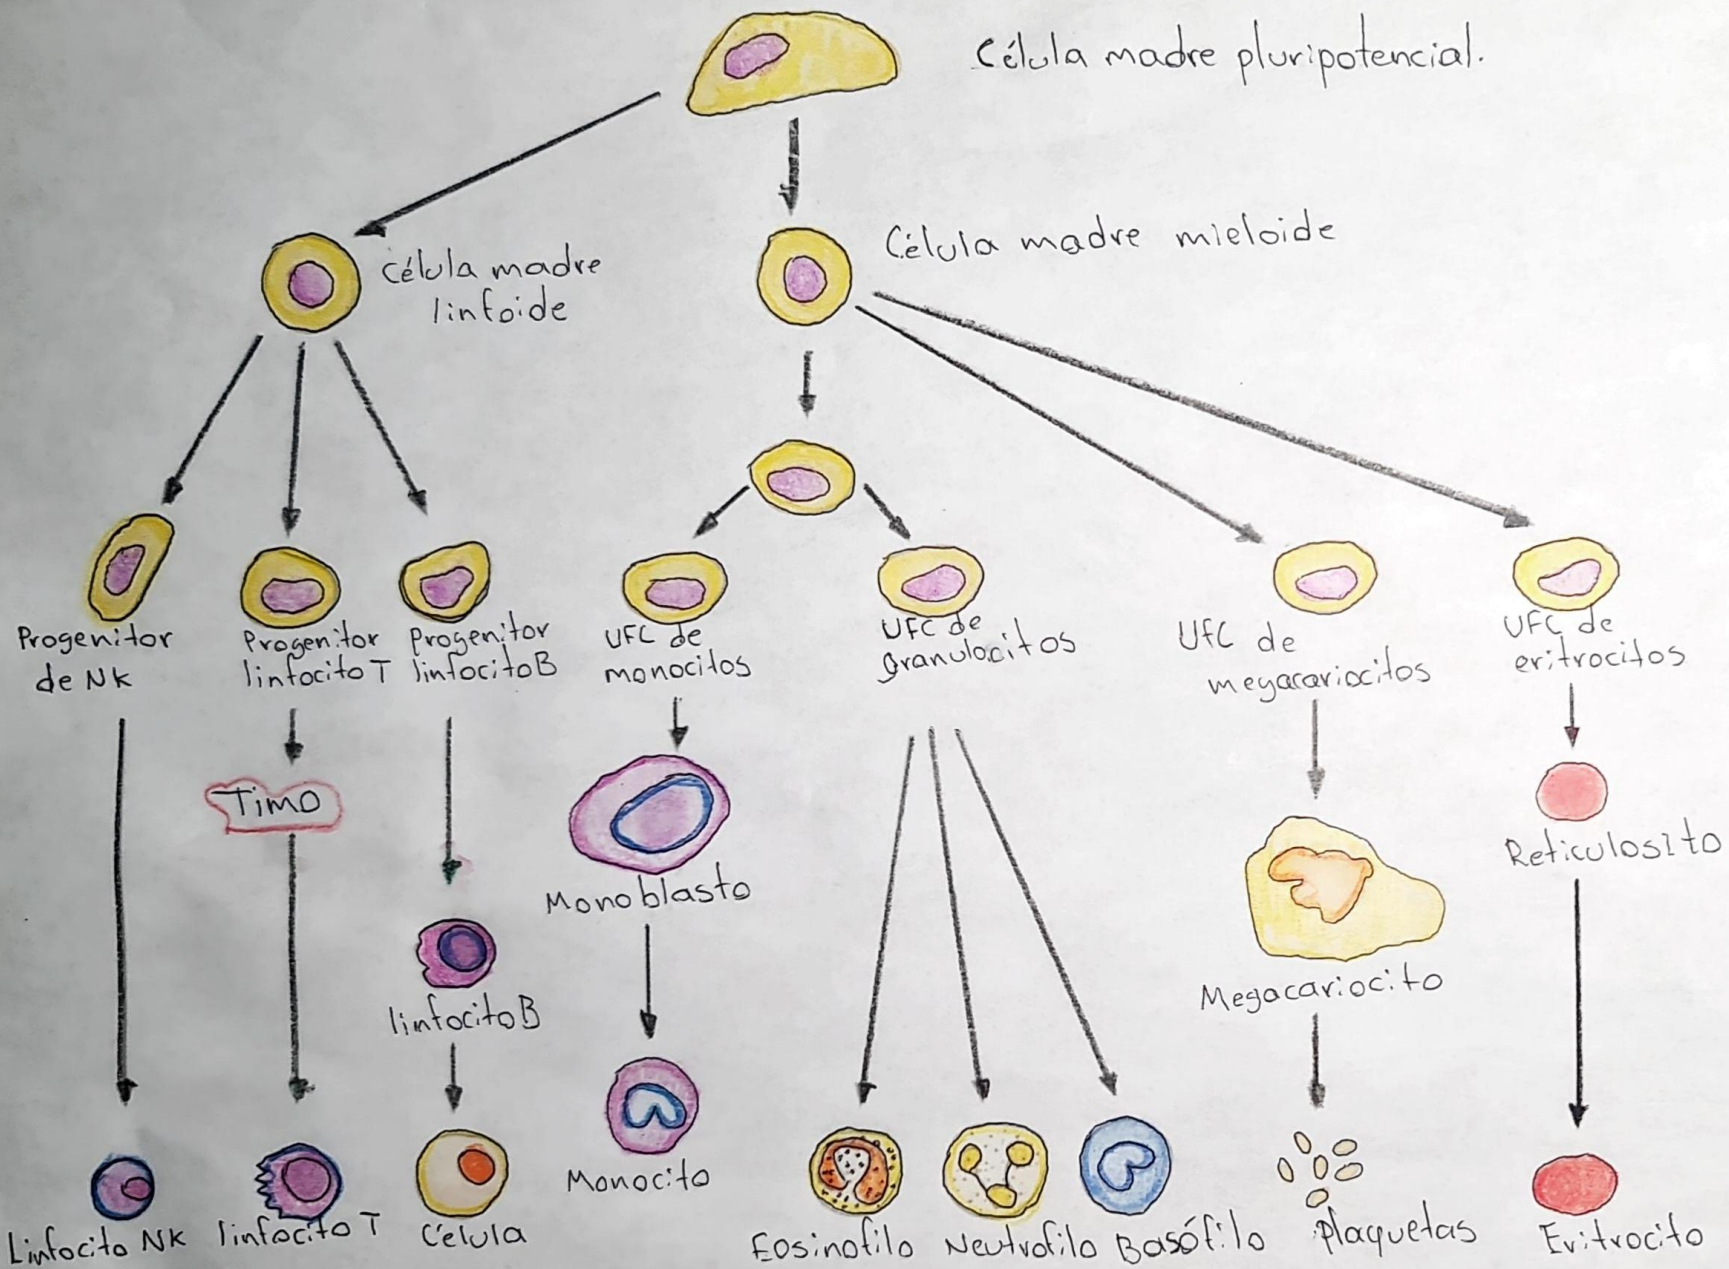 Célula madre pluripotencial.
Célula madre
linfoide
Célula madre mieloide
Progenitor
de NK
Progenitor
linfocito T
Progenitor
linfocito B
UFC de
monocitos
UFC de
granulocitos
UFC de
megacariocitos
UFC de
eritrocitos
Timo
Monoblasto
Reticulosito
linfocito B
Megacariocito
Linfocito NK
linfocito T
Célula
Monocito
Eosinofilo
Neutrofilo
Basófilo
Plaquetas
Eritrocito